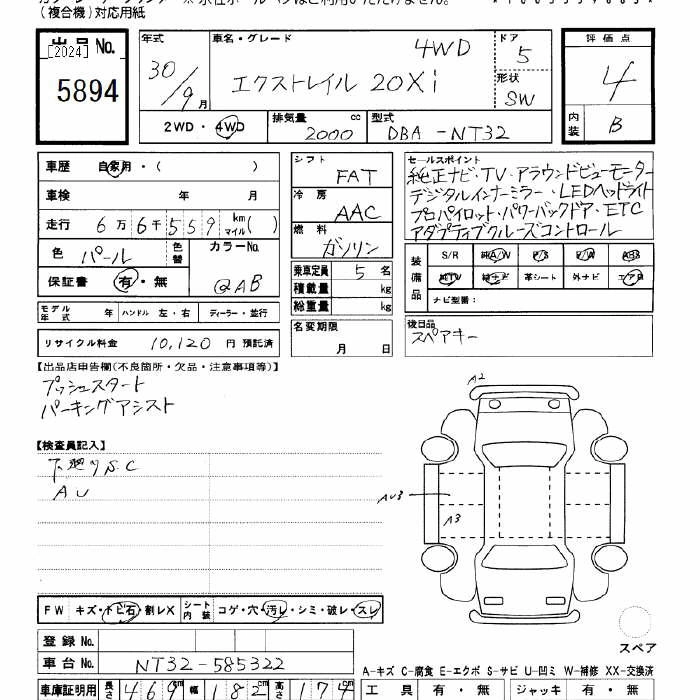 (複合機)対応用紙
出品No. [2024] 5894
年式 30/9月
車名・グレード 4WD エクストレイル 20Xi
ドア 5
形状 SW
評価点 4
内装 B
2WD・4WD
排気量 cc 2000
型式 DBA-NT32
車歴 自家用・( )
車検 年 月
走行 6万6千559 km マイル( )
色 パール 色替 カラーNo. QAB
保証書 有・無
シフト FAT
冷房 AAC
燃料 ガソリン
乗車定員 5名
積載量 kg
総重量 kg
名変期限 月 日
セールスポイント
純正ナビ・TV・アラウンドビューモーター
デジタルインナーミラー・LEDヘッドライト
プロパイロット・パワーバックドア・ETC
アダプティブクルーズコントロール
装備品 S/R 純A/W P/S P/W ABS
純TV 純ナビ 革シート 外ナビ エアB
ナビ型番:
モデル年式 年 ハンドル 左・右 ディーラー・並行
リサイクル料金 10,120円 預託済
後日品
スペアキー
【出品店申告欄(不良箇所・欠品・注意事項等)】
プッシュスタート
パーキングアシスト
【検査員記入】
AU
A2
AU3
A3
FW キズ・トビ石・割レX シート内装 コゲ・穴・汚レ・シミ・破レ・スレ
スペア
登録No.
車台No. NT32-585322
A-キズ C-腐食 E-エクボ S-サビ U-凹ミ W-補修 XX-交換済
車庫証明用 長さ 469cm 幅 182cm 高さ 174cm
工具 有・無 ジャッキ 有・無